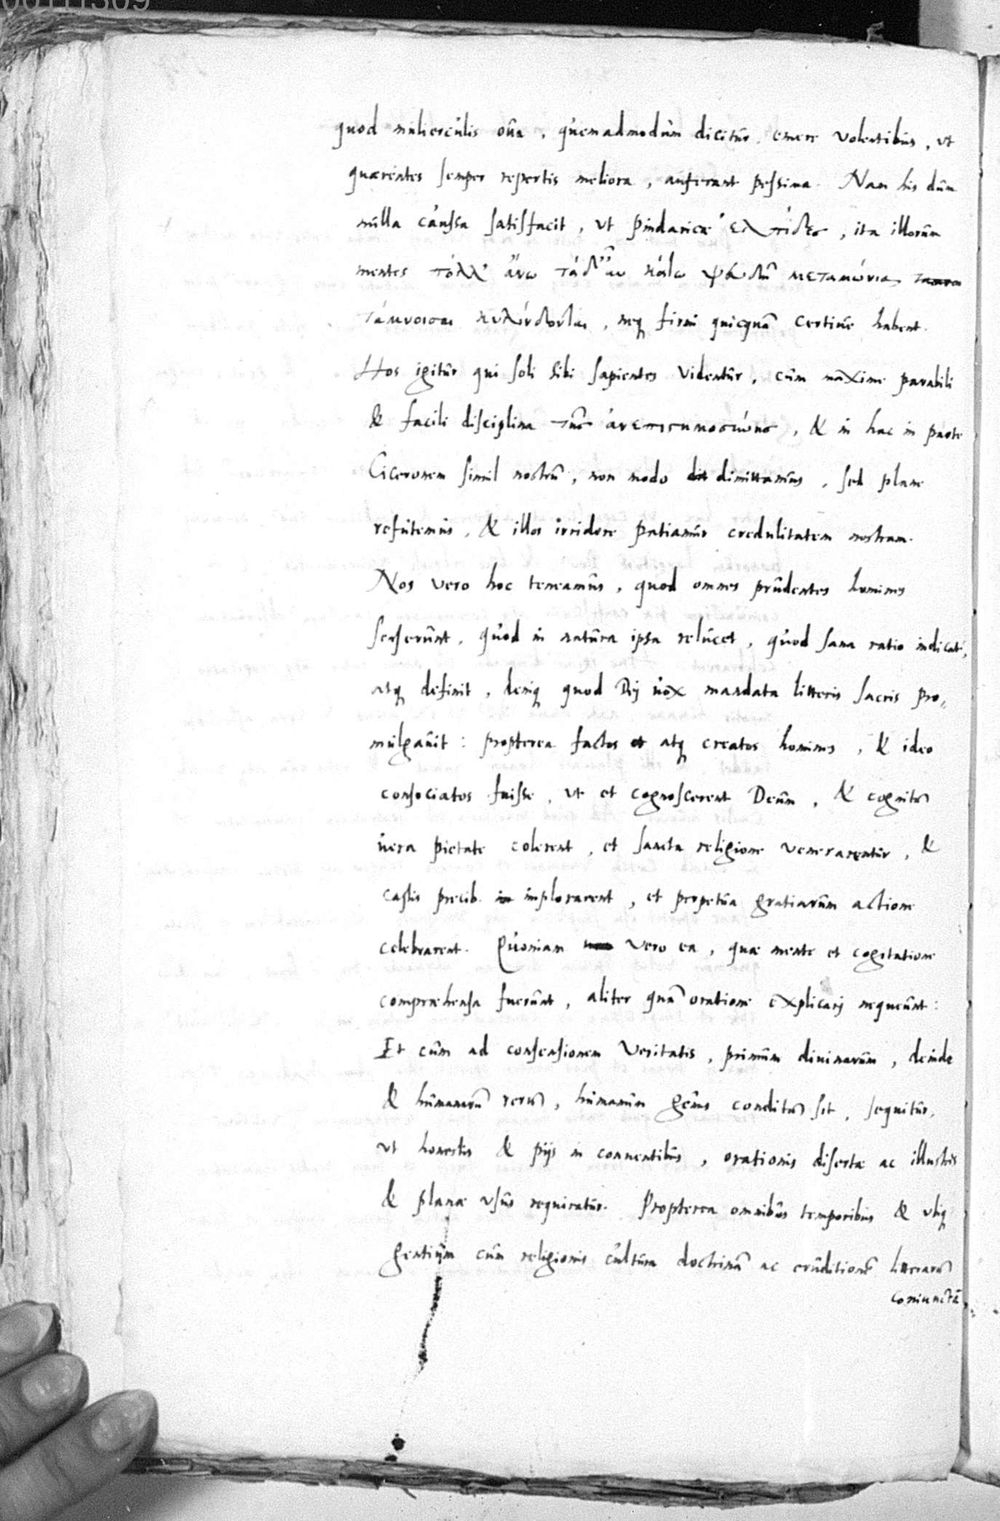 00111309
quod mulierculis oũa, quemadmodũm dicitũr, emere volentibũs, vt
quærentes semper repertis meliora, auferant pessima. Nam his dũm
nũlla caũssa satisfacit, vt pindaricæ ἐλπίδες, ita illorũm
mentes πόλλ' ἄνω τὰ δ' ἂυ κάτω ψέυδη μεταμώνια
τάμνοισαι κυλίνδονται, neq firmi quicquã certiũe habent.
Hos igitũr qui soli sibi sapientes videntũr, cũm maxime parabili
& facili disciplina τῆς ἀνεπιστημοσύνης, & in hac in parte
Ciceronem simil nostrũ, non modo dimittamũs, sed plane
refũtemũs, & illos irridere patiamũr credulitatem nostram.
Nos vero hoc teneamũs, quod omnes prũdentes homines
senserũnt, qũod in natũra ipsa relũcet, qũod sana ratio indicat,
atq definit, deniq quod Dij ũox mandata litteris sacris pro,,
mũlgaũit: propterea factos et atq creatos homines, & ideo
consociatos fuisse, vt et cognoscerent Deũm, & cognitũ
ũera pietate colerent, et sancta religione venerarentũr, &
castis precib. implorarent, et perpetũa gratiarũm actione
celebrarent. Qũoniam vero ea, quæ mente et cogitatione
compræhensa fuerũnt, aliter quã oratione explicarj nequeũnt:
Et cũm ad consensionem Veritatis, primũm divinarũm, deinde
& hũmanarũ rerũ, hũmanũm genũs conditũ sit, seqũitũr,
vt honestis & pijs in conuentibũs, orationis disertæ ac illustris
& planæ vsũs requiratũr. Propterea omnibũs temporibũs & vbiq
gentiũm cũm religionis cũltũra doctrinã ac erũditionẽ litterarũ
coniunctã,